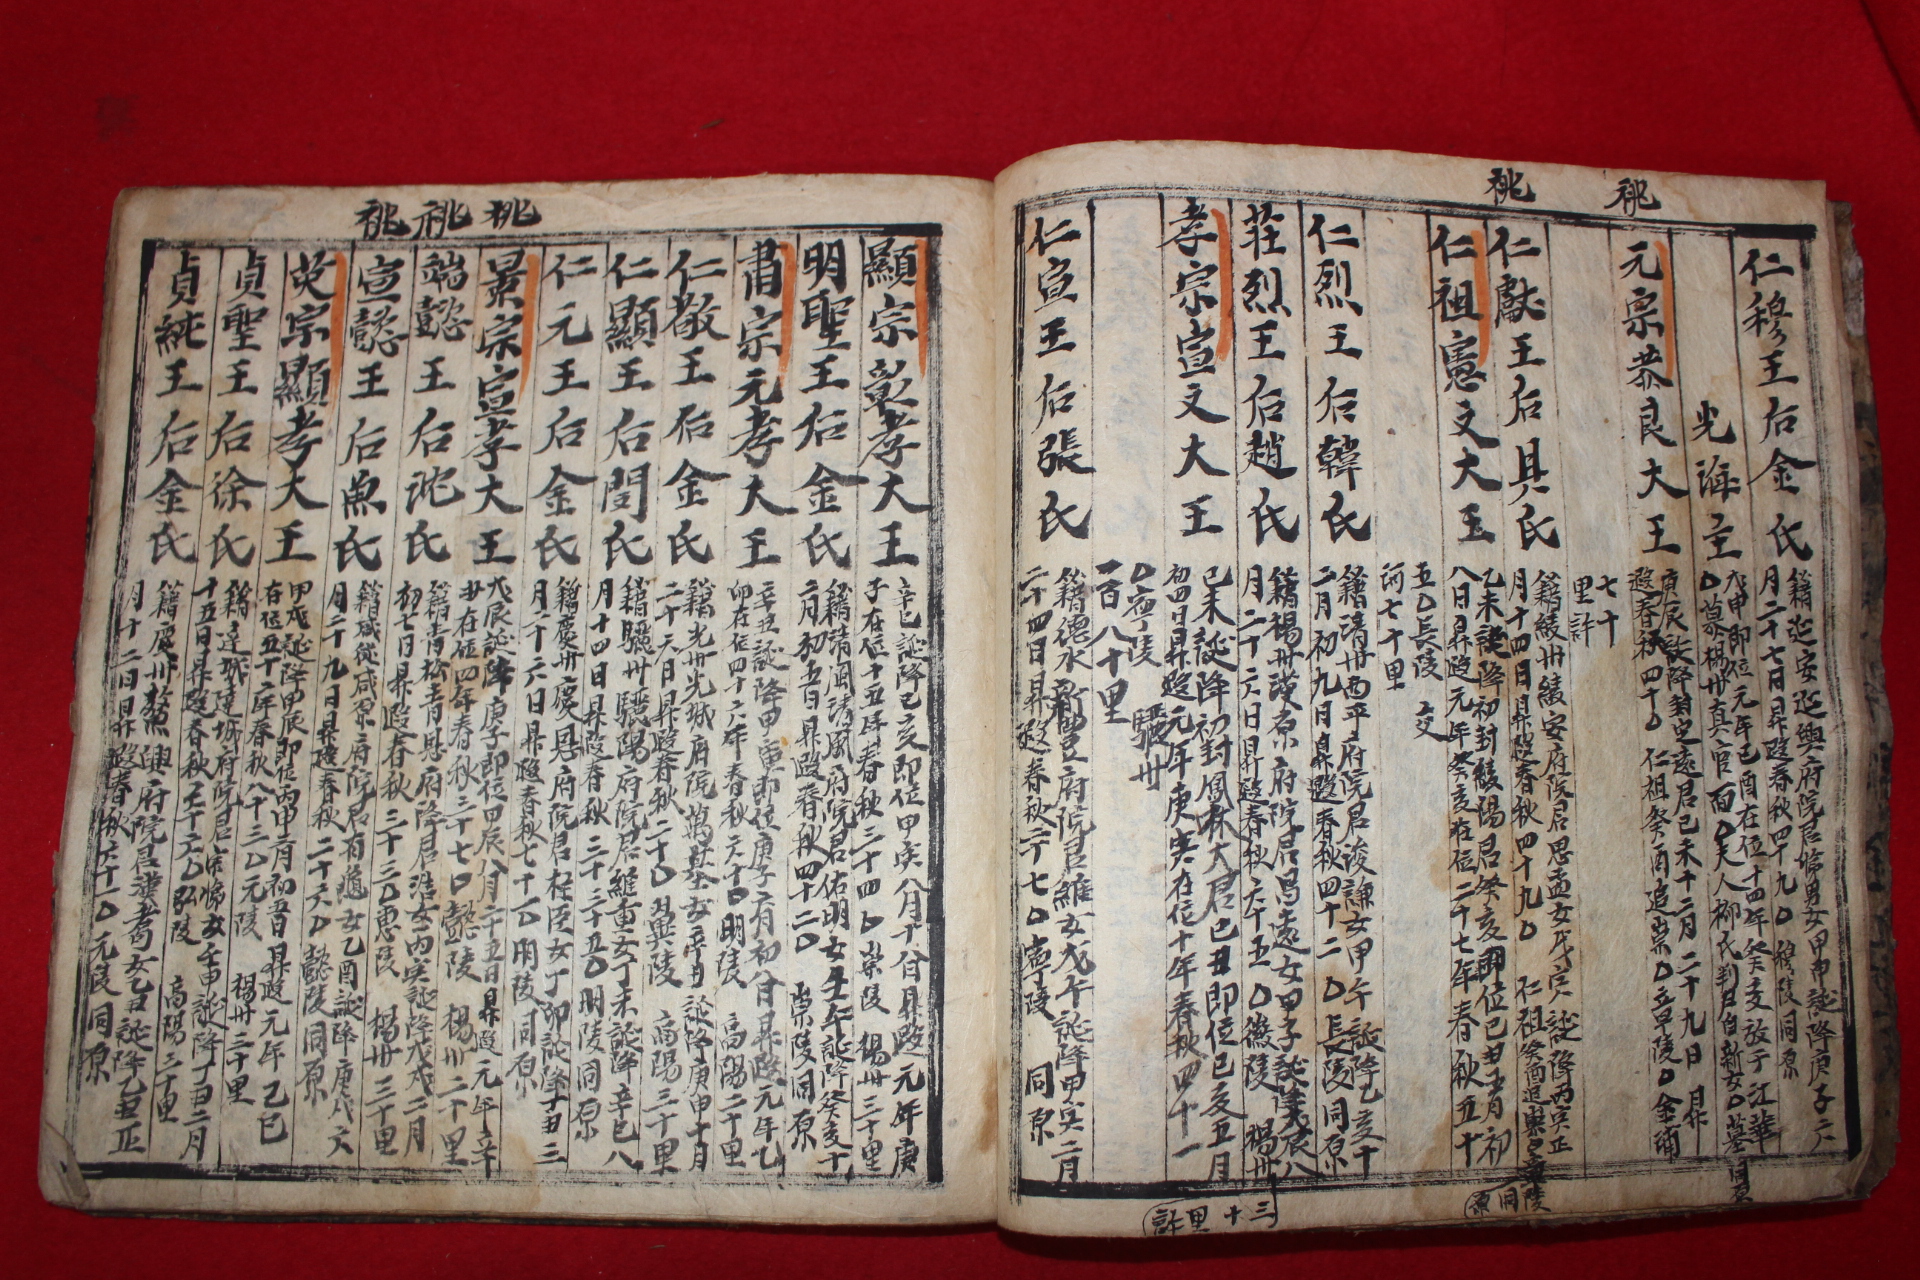 祧
祧
仁穆王后金氏
籍延安延興府院君悌男女甲申誕降庚子六
月二十七日昇遐春秋四十九〇穆陵同原
光海主
戊申即位元年己酉在位十四年癸亥放于江華
元宗恭良大王
庚辰誕降封定遠君己未十二月二十九日昇
遐春秋四十〇仁祖癸酉追崇〇章陵〇金浦
七十
里許
仁獻王后具氏
籍綾州綾安府院君思孟女戊寅誕降丙寅正
月十四日昇遐春秋四十九〇仁祖癸酉追崇〇章陵
同原
仁祖憲文大王
乙未誕降初封綾陽君癸亥即位己丑五月初
八日昇遐元年癸亥在位二十七年春秋五十
五〇長陵 交
河七十里
仁烈王后韓氏
籍清州西平府院君浚謙女甲午誕降乙亥十
二月初九日昇遐春秋四十二〇長陵同原
莊烈王后趙氏
籍楊州漢原府院君昌遠女甲子誕降戊辰八
月二十六日昇遐春秋六十五〇徽陵 楊州
三十里許
孝宗宣文大王
己未誕降初封鳳林大君己丑即位己亥五月
初四日昇遐元年庚寅在位十年春秋四十一
〇寧陵 驪州
一百八十里
仁宣王后張氏
籍德水新豊府院君維女戊午誕降甲寅二月
二十四日昇遐春秋五十七〇寧陵 同原
祧
祧
祧
顯宗彰孝大王
辛巳誕降己亥即位甲寅八月十八日昇遐元年庚
子在位十五年春秋三十四〇崇陵 楊州三十里
明聖王后金氏
籍淸風淸風府院君佑明女壬午誕降癸亥十
二月初五日昇遐春秋四十二〇崇陵同原
肅宗元孝大王
辛丑誕降甲寅即位庚子六月初八日昇遐元年乙
卯在位四十六年春秋六十〇明陵 高陽二十里
仁敬王后金氏
籍光州光城府院萬基女辛丑誕降庚申十月
二十六日昇遐春秋二十〇翼陵 高陽三十里
仁顯王后閔氏
籍驪州驪陽府院君維重女丁未誕降辛巳八
月十四日昇遐春秋三十五〇明陵同原
仁元王后金氏
籍慶州慶恩府院君柱臣女丁卯誕降丁丑三
月二十六日昇遐春秋七十一〇明陵同原
景宗宣孝大王
戊辰誕降庚子即位甲辰八月二十五日昇遐元年辛
丑在位四年春秋三十七〇懿陵 楊州二十里
端懿王后沈氏
籍青松青恩府院君浩女丙寅誕降戊戌二月
初七日昇遐春秋三十三〇惠陵 楊州三十里
宣懿王后魚氏
籍咸從咸原府院君有龜女乙酉誕降庚戌六
月二十九日昇遐春秋二十六〇懿陵同原
英宗顯孝大王
甲戌誕降甲辰即位丙申三月初五日昇遐元年乙巳
在位五十二年春秋八十三〇元陵 楊州三十里
貞聖王后徐氏
籍達城達城府院君宗悌女壬申誕降丁丑二月
十五日昇遐春秋六十六〇弘陵 高陽三十里
貞純王后金氏
籍慶州鰲興府院君漢耉女乙丑誕降乙丑正
月十二日昇遐春秋六十一〇元陵同原